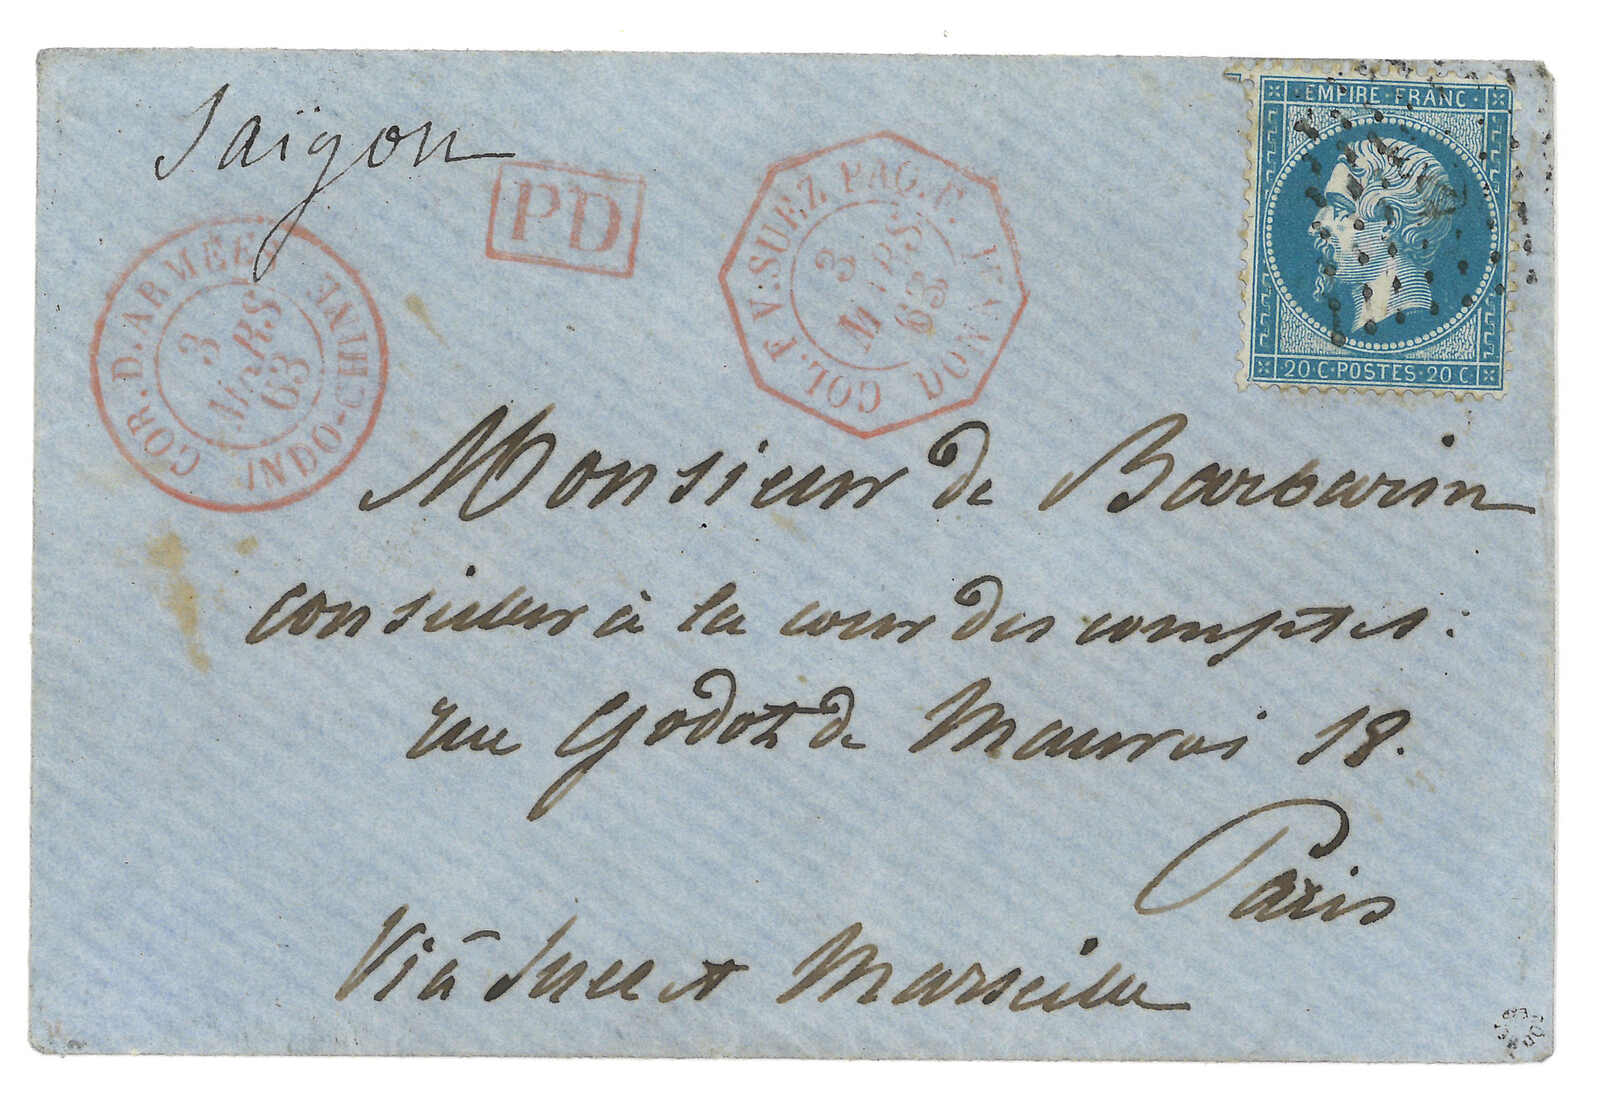 Saïgon
COR. D. ARMÉES
INDO-CHINE
3
MARS
63
PD
COL. F V. SUEZ PAQ. F.
3
MARS
63
EMPIRE FRANC
20 C POSTES 20 C
Monsieur de Barbarin
conseiller à la cour des comptes:
rue Godot de Mauroi 18.
Paris
Viâ Suez et Marseille